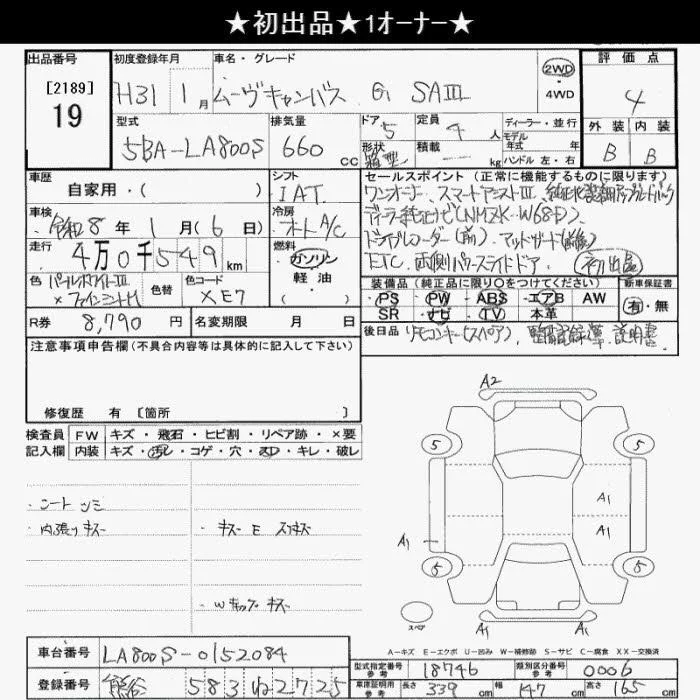 ★初出品★1オーナー★
出品番号 初度登録年月 車名・グレード 評価点
[2189] H31 1月 ムーヴキャンバス G SAIII 2WD・4WD 4
19
型式 排気量 ドア 5 定員 4人 ディーラー・並行 外装 内装
5BA-LA800S 660cc 形状 箱型 積載 ― kg モデル年式 年 B B
ハンドル 左・右
車歴 シフト セールスポイント (正常に機能するものに限ります)
自家用・( ) IAT ワンオーナー、スマートアシストIII、純正ナビ装着用アップグレードパック
車検 冷房 ディーラー純正ナビ(NMZK-W68D)
令和8年1月(6日) オートA/C ドライブレコーダー(前)、マッドガード
走行 燃料 ETC、両側パワースライドドア、初出品
4万0千549km ガソリン
軽油
( )
色 パールホワイトIII×ファイン 色替 色コード XE7
装備品 (純正品に限り○をつけてください) 新車保証書
PS・PW・ABS・エアB AW 有・無
SR・ナビ・TV・本革
R券 8,790円 名変期限 月 日
後日品 リモコンキー(スペア)、整備記録簿、説明書
注意事項申告欄(不具合内容等は具体的に記入して下さい)
修復歴 有 [箇所 ]
検査員 FW キズ・飛石・ヒビ割・リペア跡・×要
記入欄 内装 キズ・汚レ・コゲ・穴・スレ・キレ・破レ
・シートシミ
・内張リキズ ・キズ E スリキズ
・Wキャップキズ
A2
5 5
A1
A1 A1
5 5
スペア A1 A1
A=キズ E=エクボ U=凹み W=補修跡 S=サビ C=腐食 XX=交換済
車台番号 LA800S-0152084
型式指定番号 参考 18746 類別区分番号 参考 0006
登録番号 熊谷 583 ね 2725
車庫証明用 参考 長さ 339cm 幅 147cm 高さ 165cm